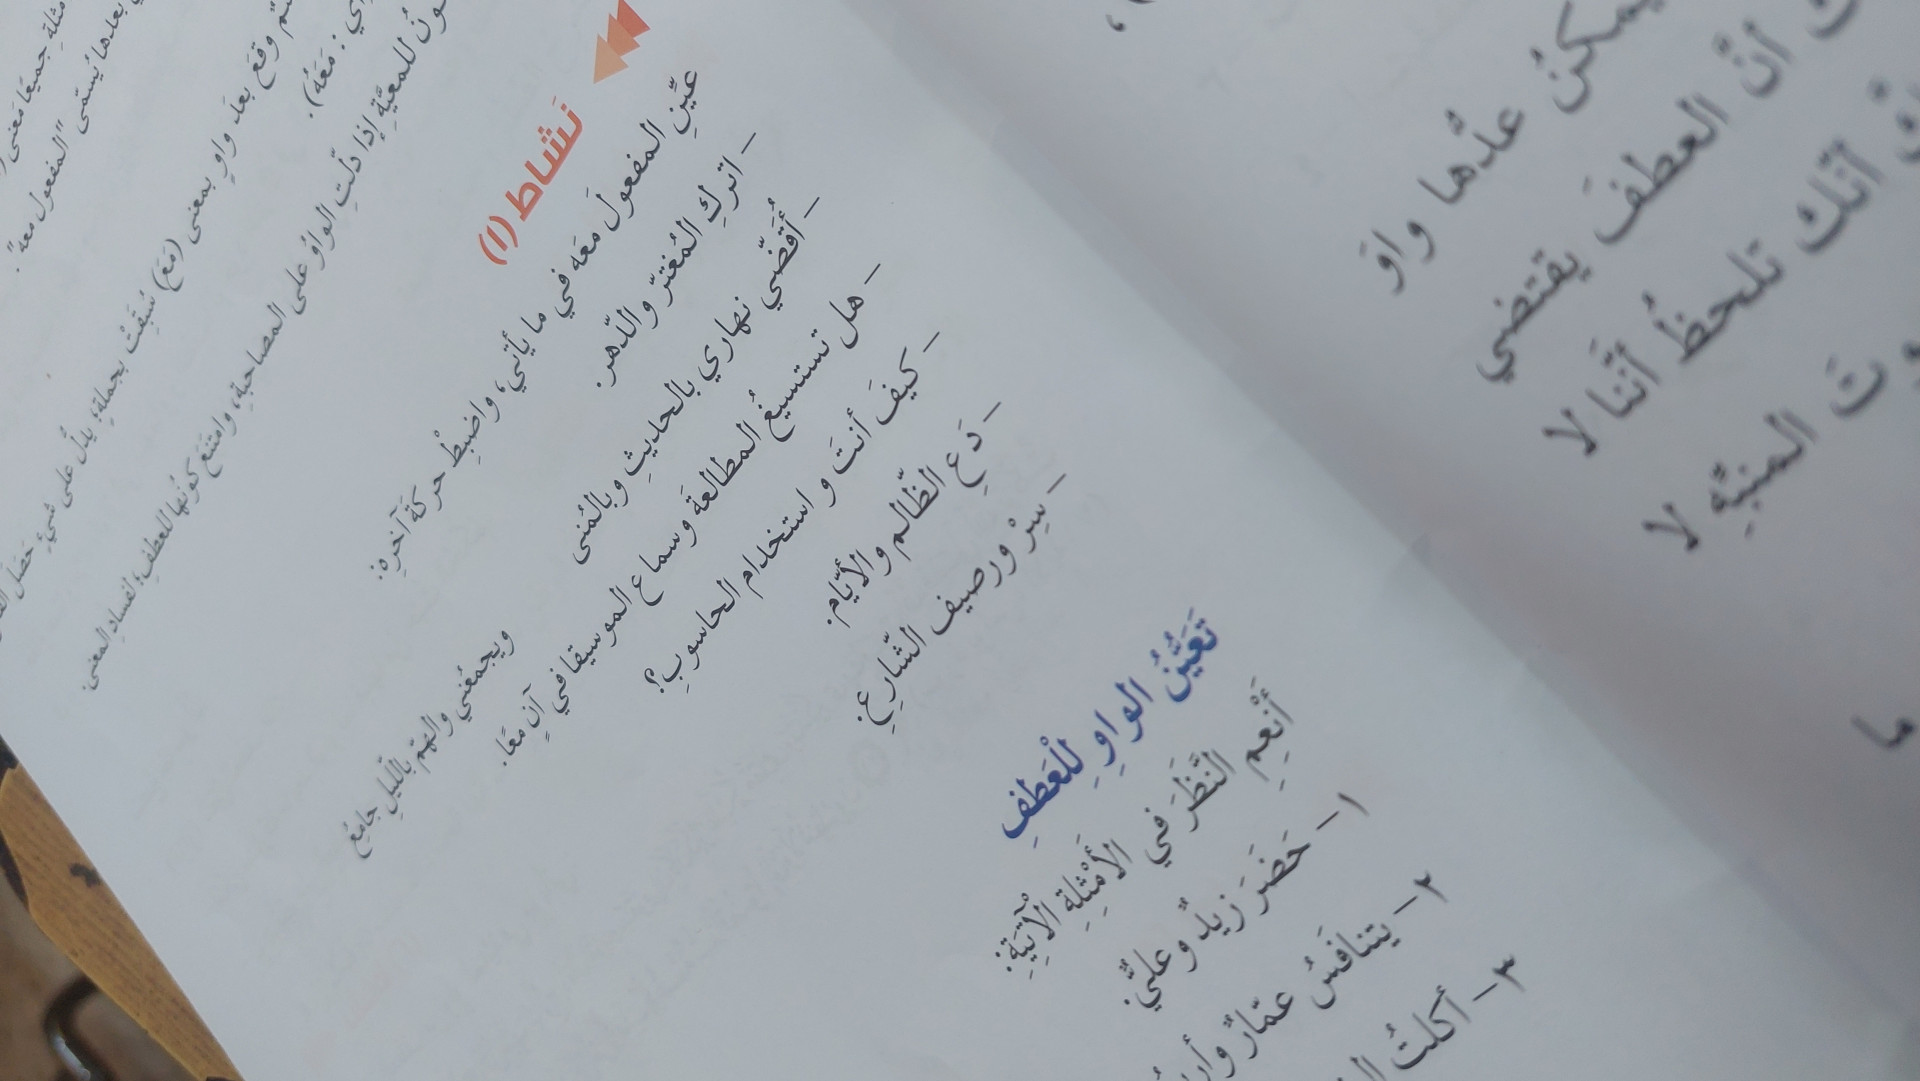 مثلةِ جميعًا معنى
بعدها يُسمّى "المفعول معه".
وقعَ بعدَ واوٍ بمعنى (مَعَ) سُبِقَتْ بجملةٍ، يدلُّ على شيءٍ حَصَلَ
أي: مَعَهُ).
للمعيَّةِ إذا دلّتِ الواوُ على المصاحبةِ، وامتنَعَ كونُها للعطفِ؛ لفسادِ المعنى.
نَشاط (١)
عيِّنِ المفعولَ مَعَه في ما يأتي، واضبِطْ حركةَ آخرِه:
– اتركِ المُغترّ والدّهر.
– أُقَضّي نهاري بالحديثِ وبالمُنى
ويجمعُني والهمّ بالليلِ جامِعُ
– هل تستسيغُ المطالعةَ وسماع الموسيقا في آنٍ معًا.
– كيفَ أنتَ و استخدام الحاسوبِ؟
– دَعِ الظّالم والأيّام.
– سِرْ ورصيف الشّارعِ.
تَعَيُّنُ الواوِ لِلْعَطفِ
أَنْعِمِ النَّظَرَ في الأَمْثِلةِ الآتيَةِ:
١– حَضَرَ زيدٌ وعليٌّ.
٢– يتنافَسُ عمّارٌ
٣– أكلتُ
يمكنُ عدُّها واوَ
أنّ العطفَ يقتضي
أنّك تلحظُ أنَّنا لا
المنبِّهِ لا
ما